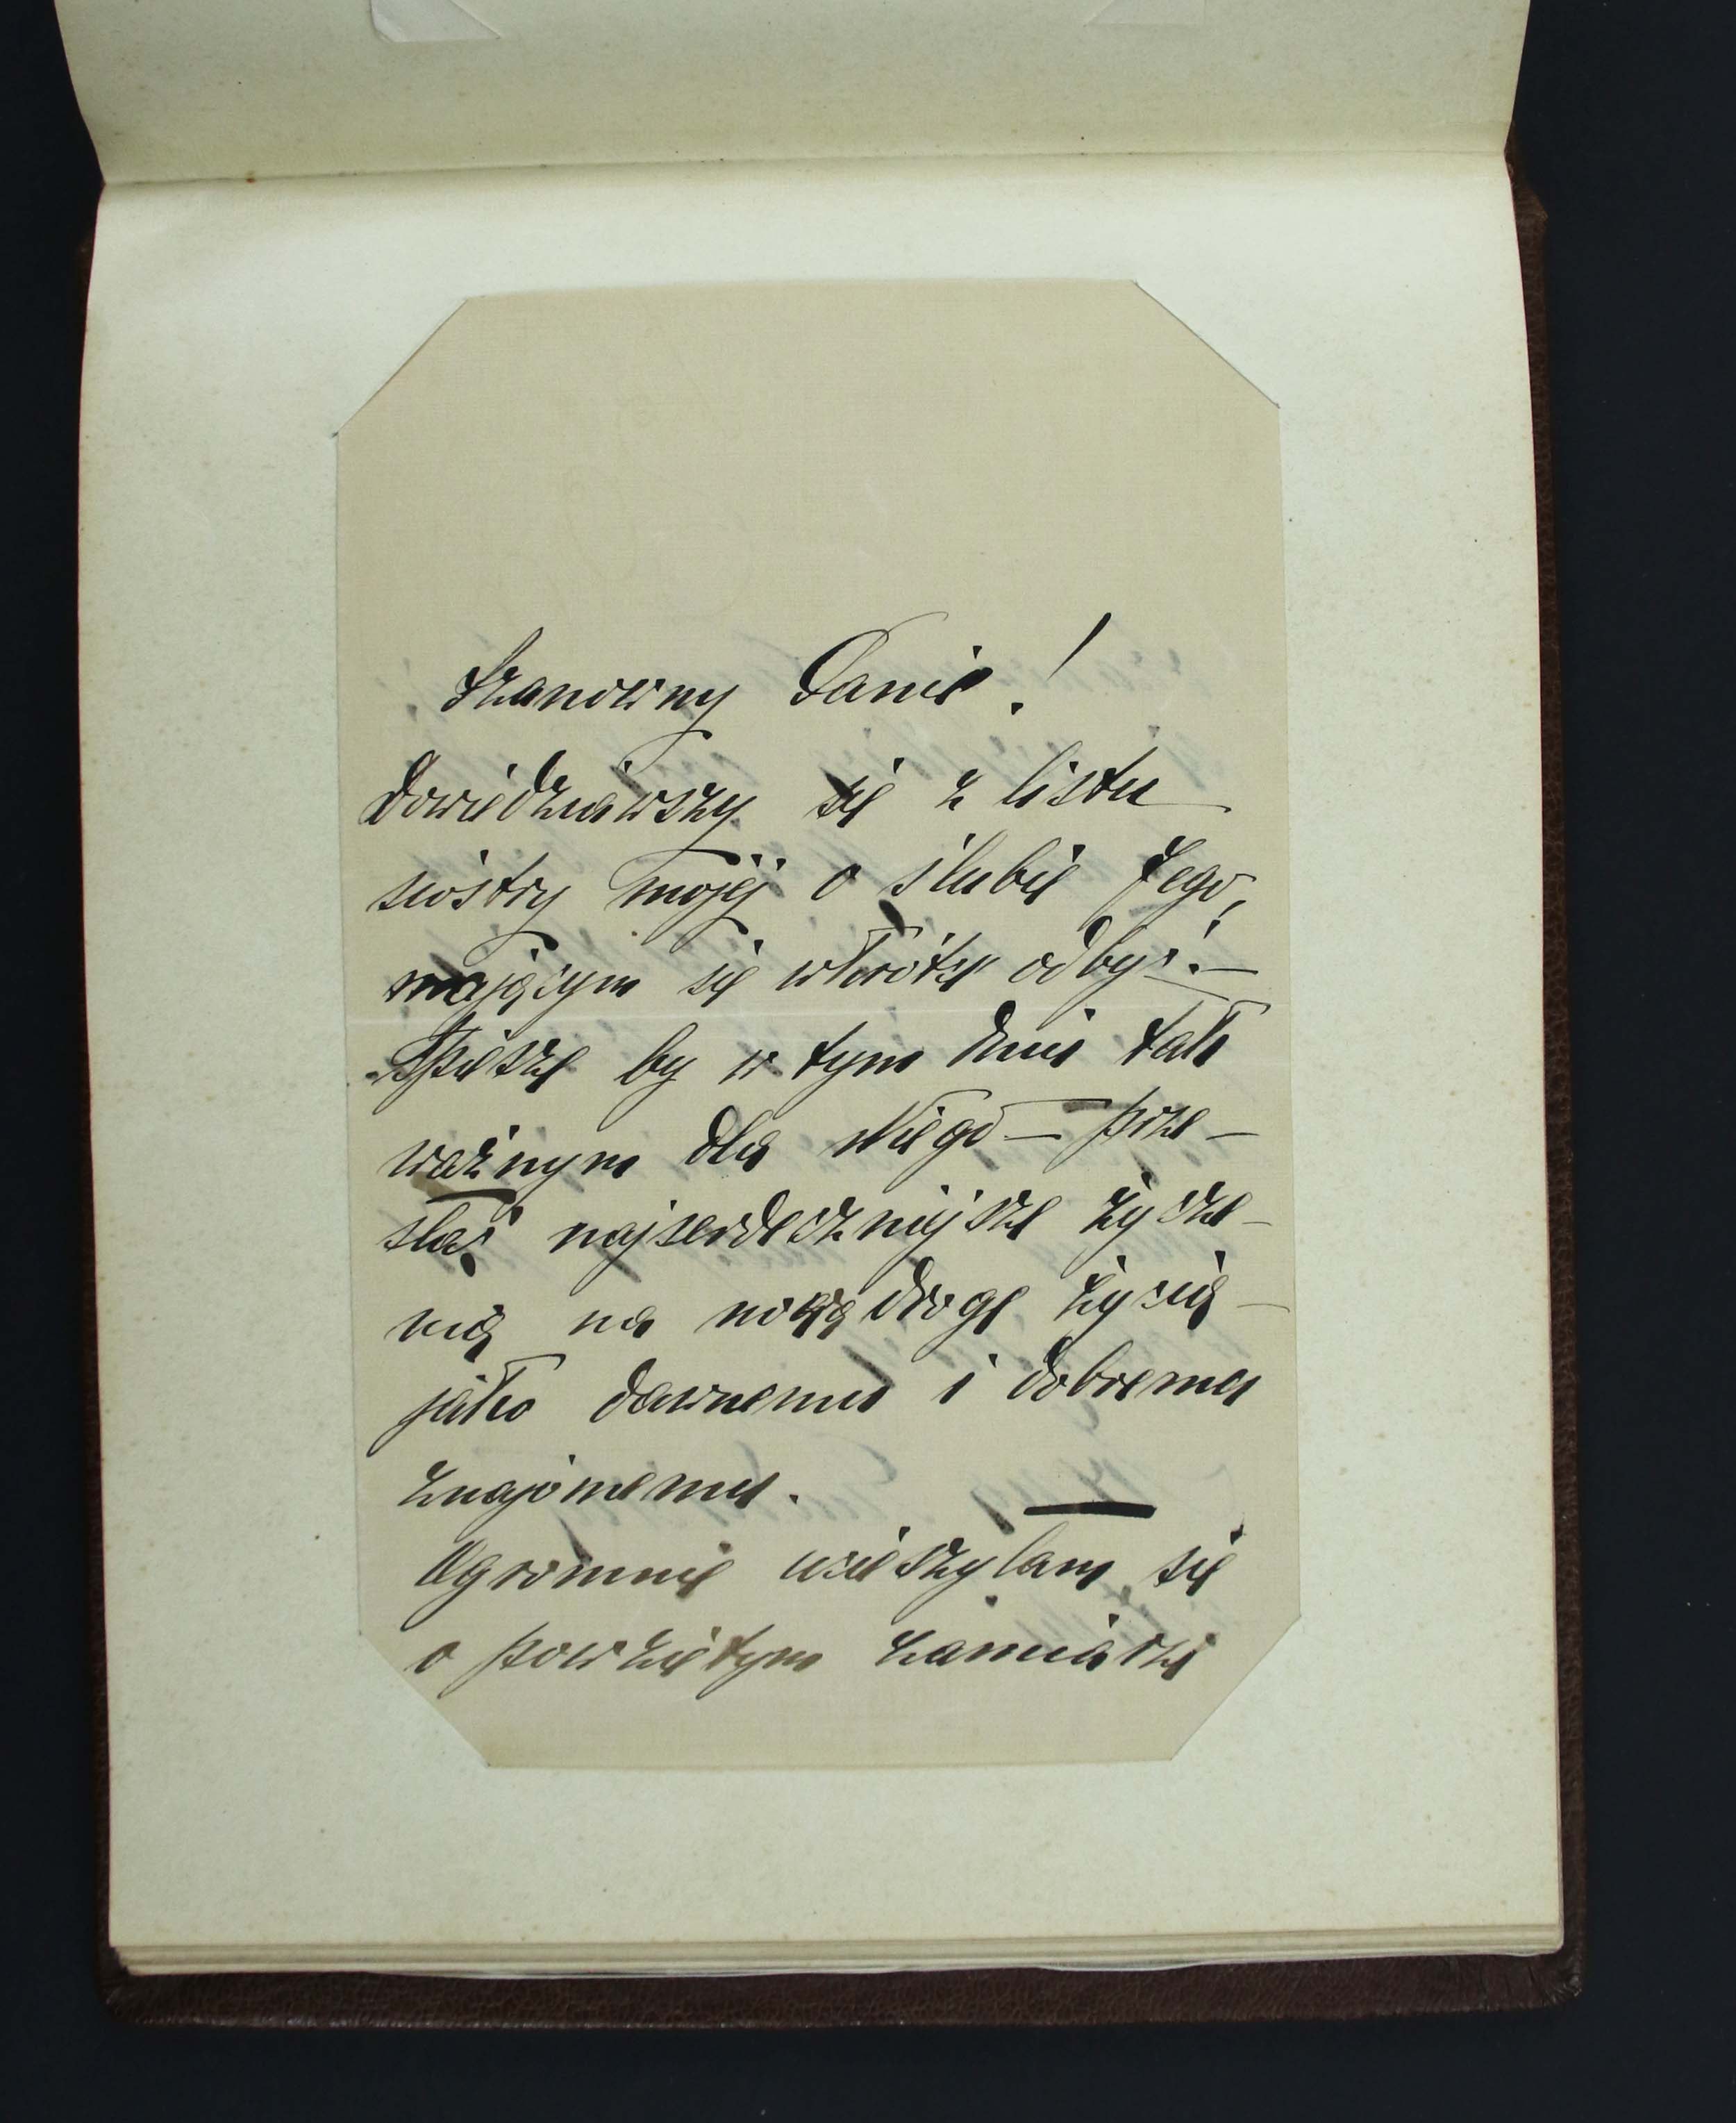 Szanowny Panie!
Dowiedziawszy się z listu
siostry mojej o ślubie Jego,
mającym się wkrótce odbyć. —
Spieszę by w tym dniu tak
ważnym dla Niego — prze-
słać najserdeczniejsze życze-
nia na nową drogę życia —
jako dawnemu i dobremu
znajomemu. —
Ogromnie ucieszyłam się
o powziętym zamiarze